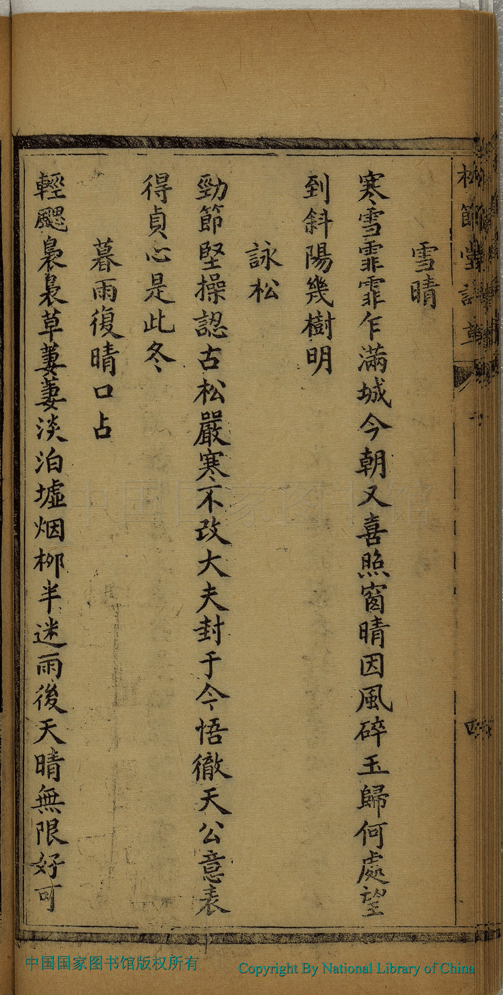 雪晴
寒雪霏霏乍滿城今朝又喜照窗晴因風碎玉歸何處望
到斜陽幾樹明
詠松
勁節堅操認古松嚴寒不改大夫封于今悟徹天公意表
得貞心是此冬
暮雨復晴口占
輕颸裊裊草萋萋淡泊墟烟柳半迷雨後天晴無限好可
中国国家图书馆版权所有
Copyright By National Library of China